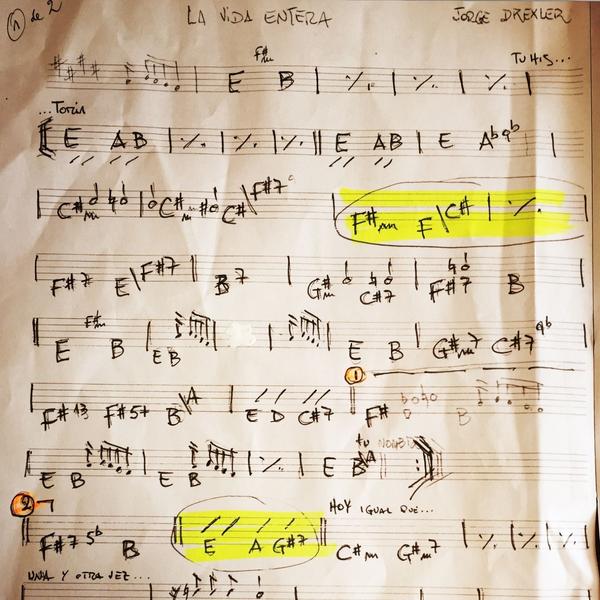 1 de 2 LA VIDA ENTERA JORGE DREXLER
F#m TU HIS...
E B
...Toria
E A B E A B E Ab 9b
C#m C#m C# \ F#7 F#m E \ C#
F#7 E \ F#7 B7 G#m C#7 F#7 B
F#m
E B E B E B G#m7 C#7 9b
1
F#13 F#5+ B \ A E D C#7 F# B
tu NOMBRE
E B E B E B \ A
2 HOY IGUAL QUE...
F#7 5b B E A G#7 C#m G#m7
UNA Y OTRA VEZ...